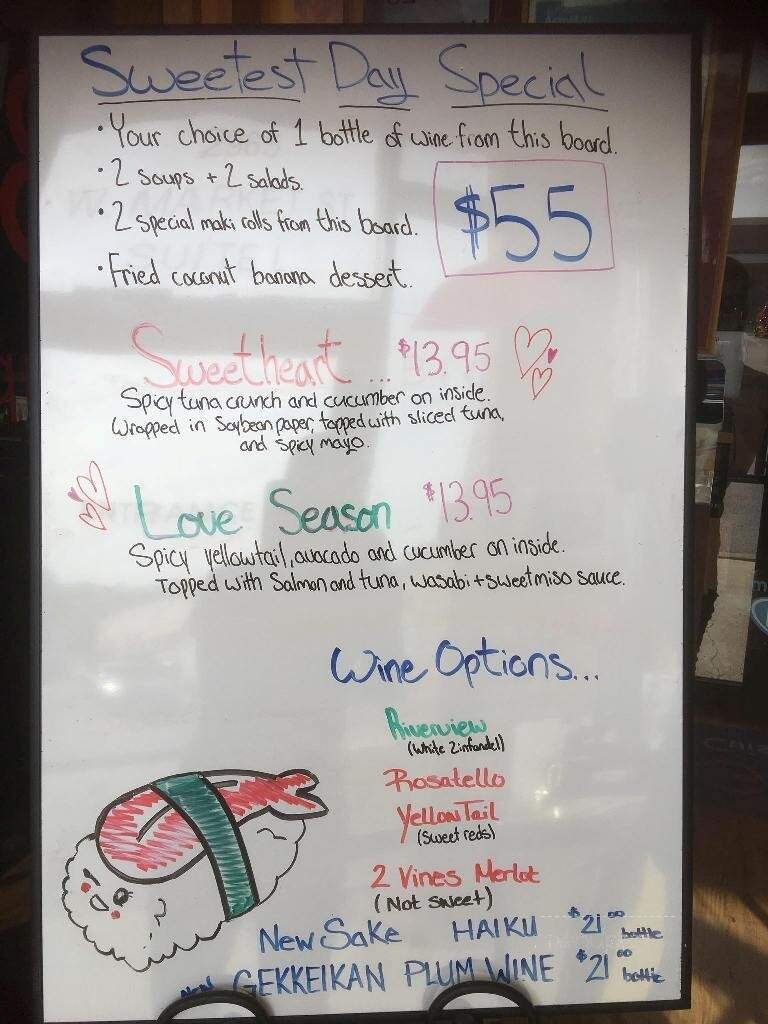 Sweetest Day Special
• Your choice of 1 bottle of wine from this board.
• 2 soups + 2 salads.
• 2 special maki rolls from this board.
$55
• Fried coconut banana dessert.
Sweetheart ... $13.95
Spicy tuna crunch and cucumber on inside.
Wrapped in Soybean paper, topped with sliced tuna,
and spicy mayo.
Love Season $13.95
Spicy yellowtail, avocado and cucumber on inside.
Topped with Salmon and tuna, wasabi + sweet miso sauce.
Wine Options...
Riverview
(White Zinfandel)
Rosatello
Yellow Tail
(Sweet reds)
2 Vines Merlot
(Not sweet)
New Sake HAIKU $21.00 bottle
GEKKEIKAN PLUM WINE $21.00 bottle